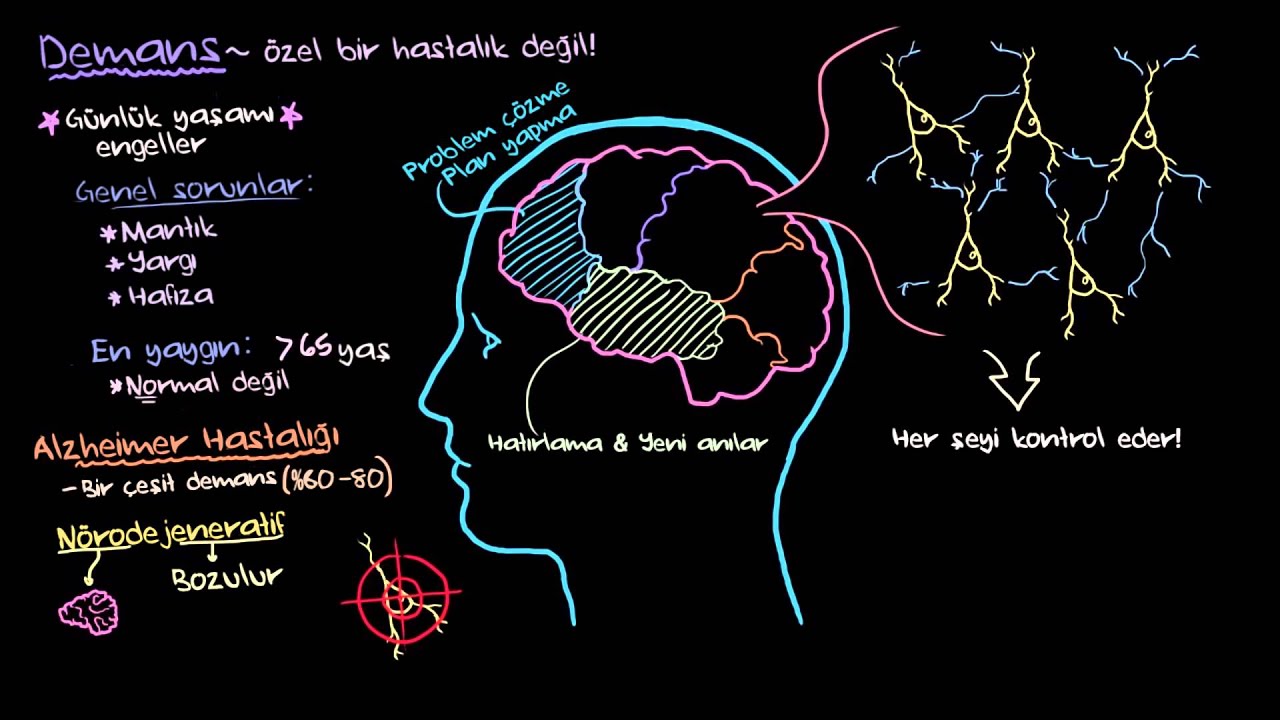 Demans ~ özel bir hastalık değil!
* Günlük yaşamı *
engeller
Genel sorunlar:
* Mantık
* Yargı
* Hafıza
En yaygın: >65 yaş
* Normal değil
Alzheimer Hastalığı
- Bir çeşit demans (%60-80)
Nörodejeneratif
Bozulur
Problem çözme
Plan yapma
Hatırlama & Yeni anılar
Her şeyi kontrol eder!